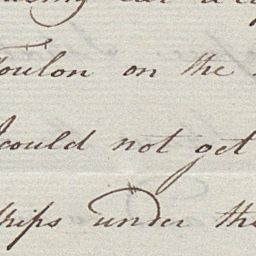 Toulon on the
could not get
ships under the